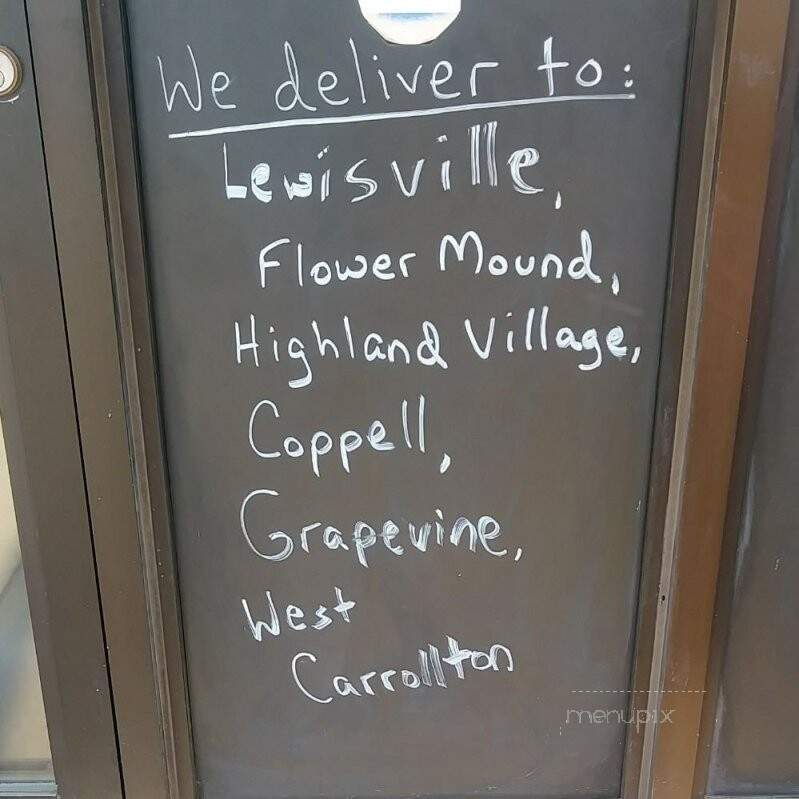 We deliver to:
Lewisville,
Flower Mound,
Highland Village,
Coppell,
Grapevine,
West
Carrollton
menupix